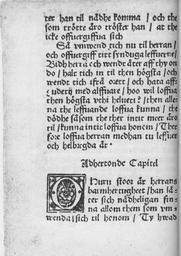 ter han til nådhe komma / och the
som trötte äro tröster han / at the
icke offuergiffua sich
Så vnwend tich nu til herran /
och offuergiff titt syndiga leffuerne /
Bidh herra och wend åter aff thy on
do / halt tich til then högsta / och
wend tich ifrå orett / och hata aff-
the leffuande loffua kunna / the
dödhe såsom the ther intit mere äro
til / kunna intit loffua honom / Ther
före loffua herran medhan tu leffuer
och helbrygda är
Adhertonde Capitel
O Huru stoor är herrans
barmhertighet / han lå
ter sich nådheligan fin
na allom them som vm
wenda sich til honom / Ty hwad